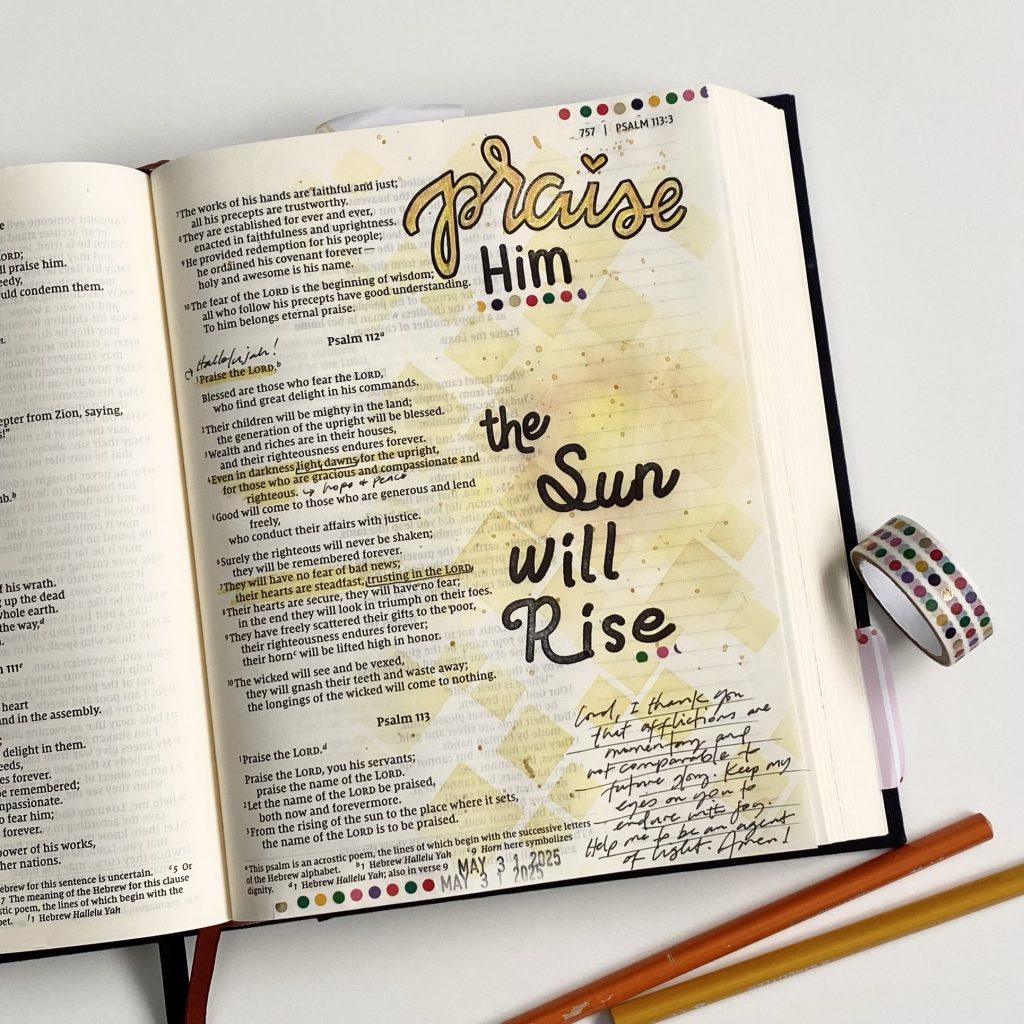 LORD;
ll praise him.
eedy,
ould condemn them.
epter from Zion, saying,
s!"
mb.b
of his wrath.
g up the dead
whole earth.
the way,d
m 111e
heart
and in the assembly.
delight in them.
eeds,
es forever.
be remembered;
mpassionate.
o fear him;
forever.
power of his works,
her nations.
ebrew for this sentence is uncertain. c5 Or
7 The meaning of the Hebrew for this clause
stic poem, the lines of which begin with the
bet. f1 Hebrew Hallelu Yah
757 | PSALM 113:3
praise
Him
the
Sun
will
Rise
7The works of his hands are faithful and just;
all his precepts are trustworthy.
8They are established for ever and ever,
enacted in faithfulness and uprightness.
9He provided redemption for his people;
he ordained his covenant forever—
holy and awesome is his name.
10The fear of the LORD is the beginning of wisdom;
all who follow his precepts have good understanding.
To him belongs eternal praise.
Psalm 112a
Hallelujah!
1Praise the LORD.b
Blessed are those who fear the LORD,
who find great delight in his commands.
2Their children will be mighty in the land;
the generation of the upright will be blessed.
3Wealth and riches are in their houses,
and their righteousness endures forever.
4Even in darkness light dawns for the upright,
for those who are gracious and compassionate and
righteous. → hope & peace
5Good will come to those who are generous and lend
freely,
who conduct their affairs with justice.
6Surely the righteous will never be shaken;
they will be remembered forever.
7They will have no fear of bad news;
their hearts are steadfast, trusting in the LORD.
8Their hearts are secure, they will have no fear;
in the end they will look in triumph on their foes.
9They have freely scattered their gifts to the poor,
their righteousness endures forever;
their hornc will be lifted high in honor.
10The wicked will see and be vexed,
they will gnash their teeth and waste away;
the longings of the wicked will come to nothing.
Psalm 113
1Praise the LORD.d
Praise the LORD, you his servants;
praise the name of the LORD.
2Let the name of the LORD be praised,
both now and forevermore.
3From the rising of the sun to the place where it sets,
the name of the LORD is to be praised.
a This psalm is an acrostic poem, the lines of which begin with the successive letters
of the Hebrew alphabet. b1 Hebrew Hallelu Yah c9 Horn here symbolizes
dignity. d1 Hebrew Hallelu Yah; also in verse 9
MAY 3 1 2025
MAY 3 1 2025
Lord, I thank you
that afflictions are
momentary and
not comparable to
future glory. Keep my
eyes on you to
endure with joy.
Help me to be an agent
of light. Amen!